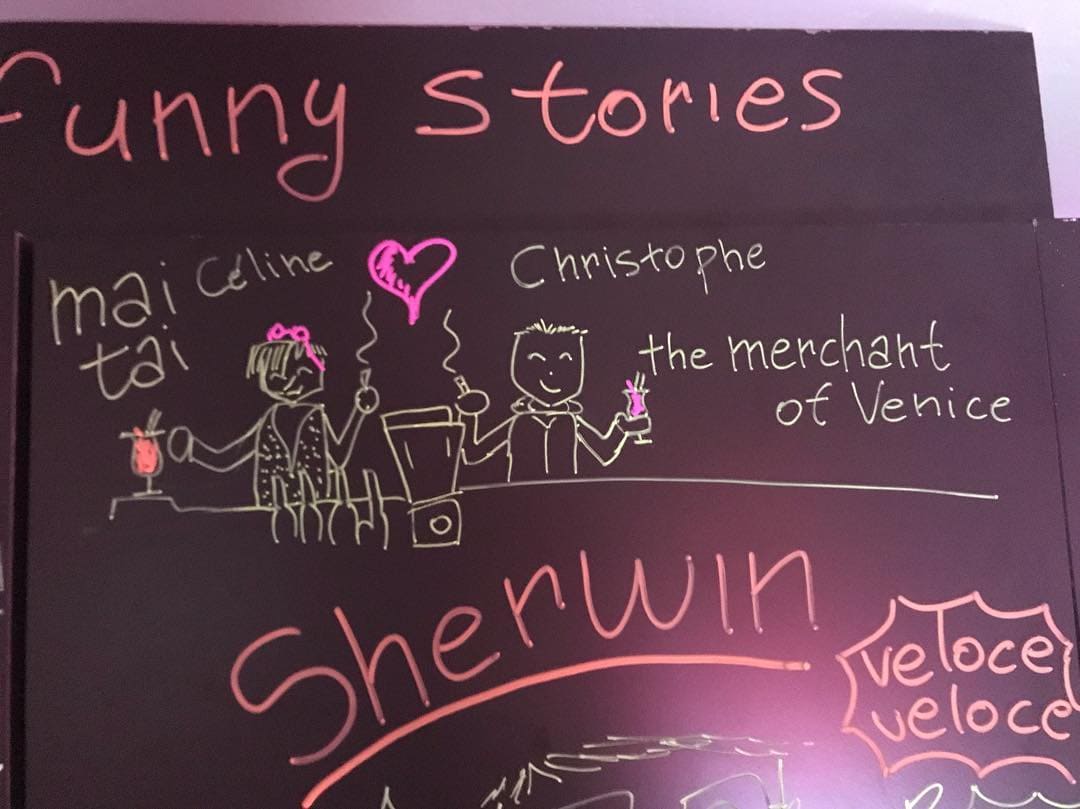 funny stories
mai Céline Christophe
tai
the merchant
of Venice
Sherwin
veloce
veloce